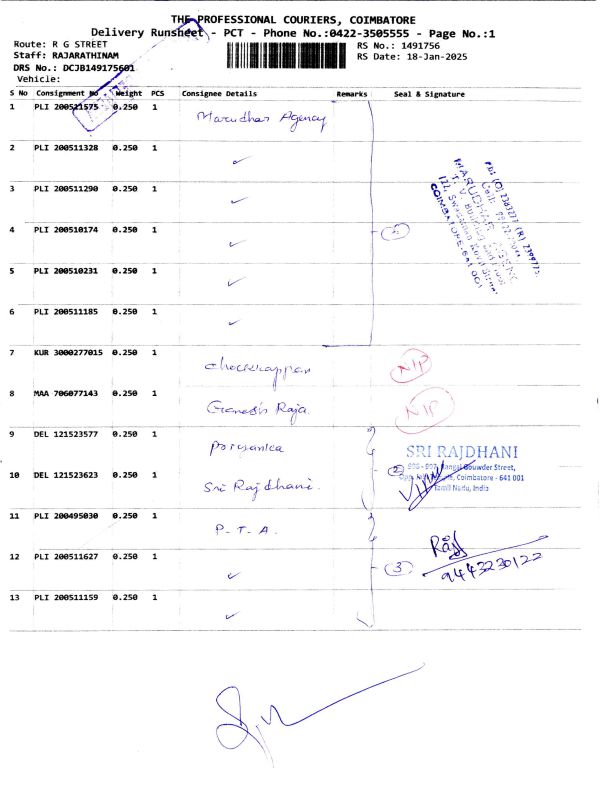 THE PROFESSIONAL COURIERS, COIMBATORE
Delivery Runsheet - PCT - Phone No.:0422-3505555 - Page No.:1
Route: R G STREET
RS No.: 1491756
Staff: RAJARATHINAM
RS Date: 18-Jan-2025
DRS No.: DCJB149175601
Vehicle:
S No Consignment No Weight PCS Consignee Details Remarks Seal & Signature
1 PLI 200511575 0.250 1 Marudhar Agency
2 PLI 200511328 0.250 1 ✓
3 PLI 200511290 0.250 1 ✓
4 PLI 200510174 0.250 1 ✓
5 PLI 200510231 0.250 1 ✓
6 PLI 200511185 0.250 1 ✓
MARUDHAR AGENCY
COIMBATORE-641 001
7 KUR 3000277015 0.250 1 N/P
8 MAA 706077143 0.250 1 Ganesh Raja N/P
9 DEL 121523577 0.250 1 Poriyanka
10 DEL 121523623 0.250 1 Sri Rajdhani. 2
SRI RAJDHANI
Gowder Street,
Coimbatore - 641 001
Tamil Nadu, India
11 PLI 200495030 0.250 1 P. T. A.
12 PLI 200511627 0.250 1 ✓ 3
Raj
9443230122
13 PLI 200511159 0.250 1 ✓